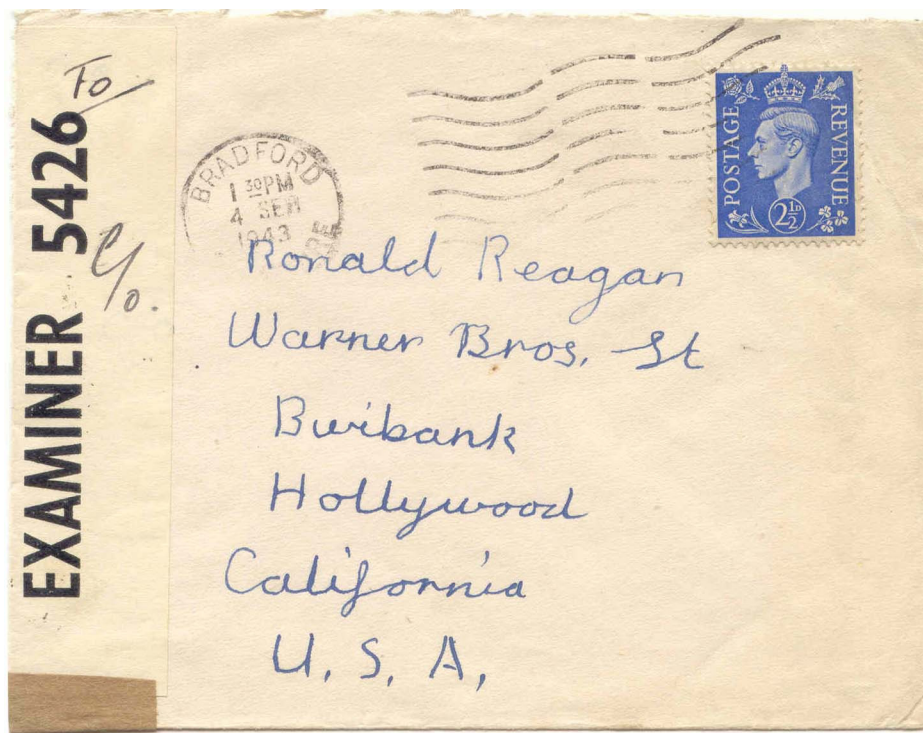 EXAMINER 5426
To
C/o.
BRADFORD
1 30 PM
4 SEP
1943
POSTAGE
REVENUE
2 1/2 D
Ronald Reagan
Warner Bros. St
Bwibank
Hollywood
California
U. S. A,